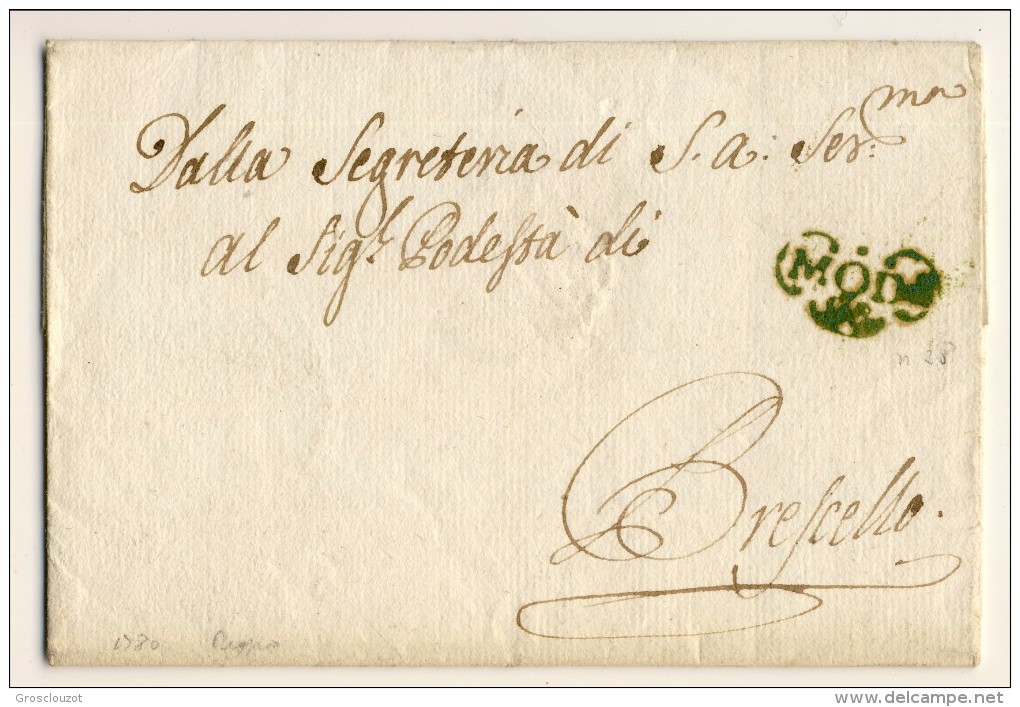 Dalla Segreteria di S. A: Ser:ma
al Sig.r Podestà di
MOD
n 28
Brescello.
1780
Grosclouzot
www.delcampe.net